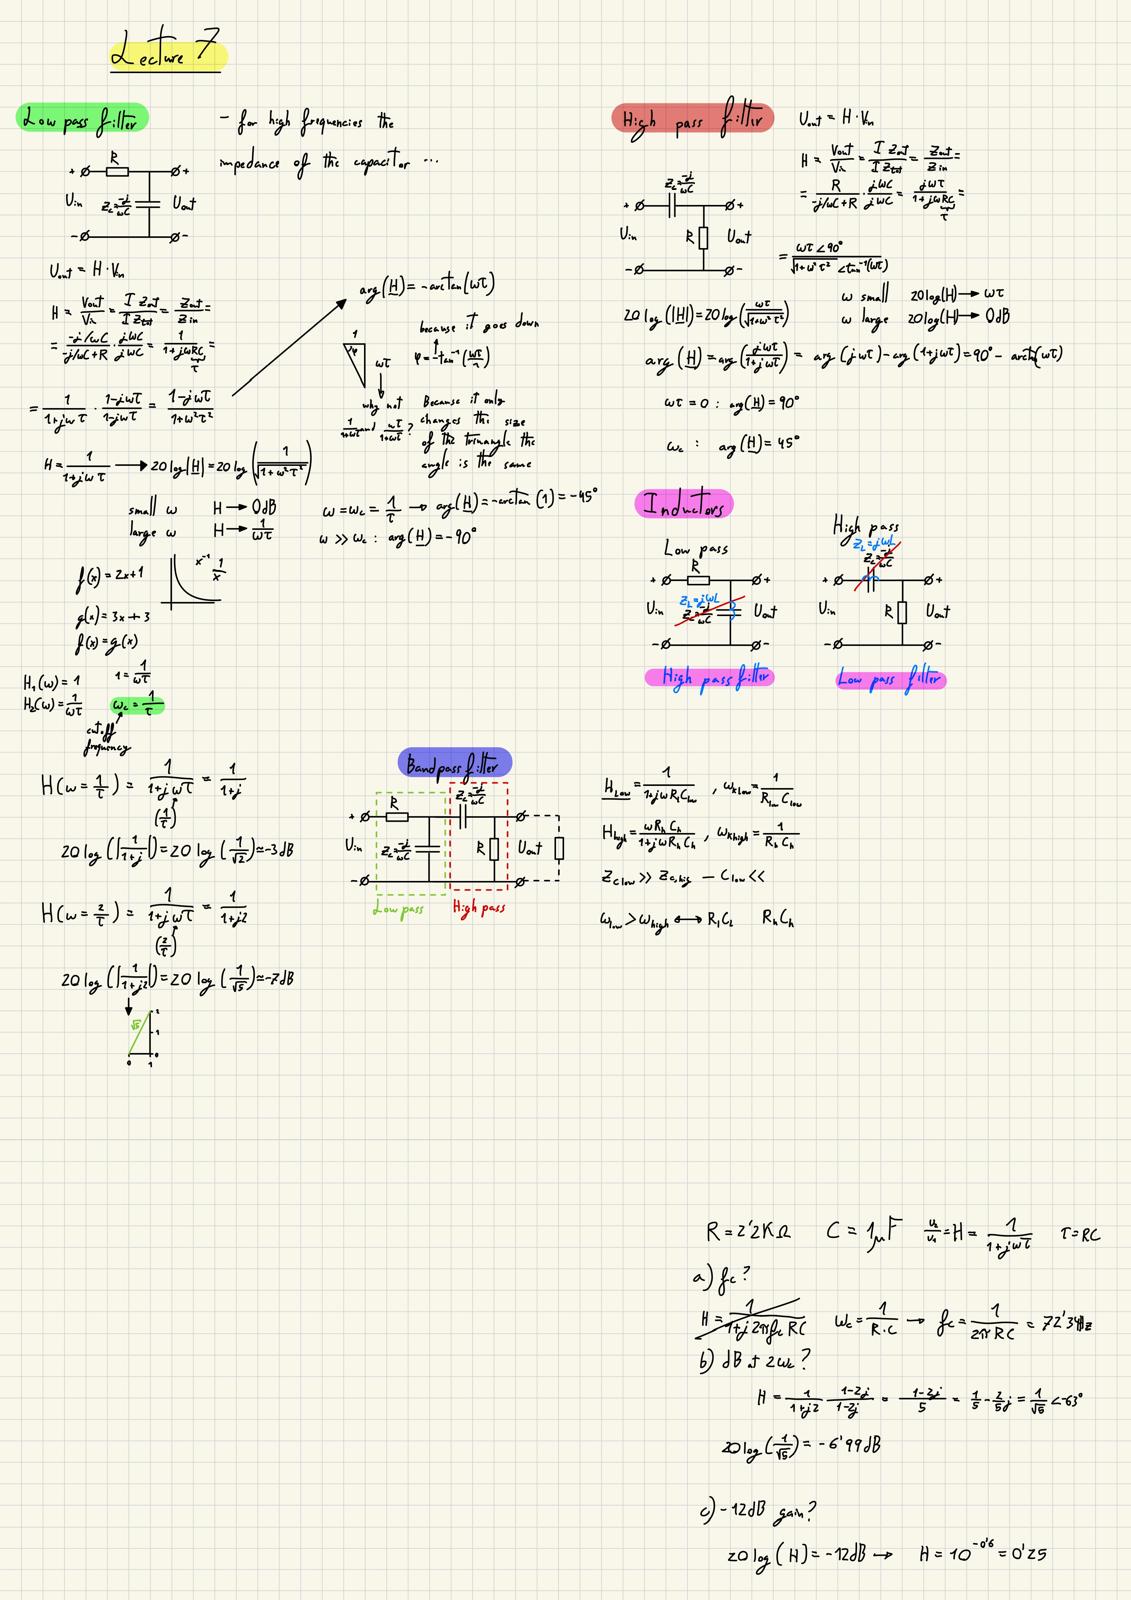 Lecture 7
Low pass filter
- for high frequencies the
impedance of the capacitor ...
+ R +
Uin Zc=-j/ωC Uout
- -
Uout = H·Vin
H = Vout/Vin = I Zout/I Ztot = Zout/Zin =
= -j/ωC/(-j/ωC+R) · jωC/jωC = 1/(1+jωRC) =
τ
= 1/(1+jωτ) · (1-jωτ)/(1-jωτ) = (1-jωτ)/(1+ω²τ²)
arg(H) = -arctan(ωτ)
1
φ
ωτ
because it goes down
φ = -tan⁻¹(ωτ/1)
why not
1/(1+ωτ) and ωτ/(1+ωτ)?
Because it only
changes the size
of the trinangle the
angle is the same
H = 1/(1+jωτ) → 20 log|H| = 20 log(1/√(1+ω²τ²))
small ω H → 0dB
large ω H → 1/ωτ
ω = ωc = 1/τ → arg(H) = -arctan(1) = -45°
ω >> ωc : arg(H) = -90°
f(x) = 2x+1
x⁻¹ 1/x
g(x) = 3x+3
f(x) = g(x)
H₁(ω) = 1
1 = 1/ωτ
H₂(ω) = 1/ωτ
ωc = 1/τ
cutoff
frequency
H(ω = 1/τ) = 1/(1+jωτ) = 1/(1+j)
(1/τ)
20 log(|1/(1+j)|) = 20 log(1/√2) ≈ -3dB
H(ω = 2/τ) = 1/(1+jωτ) = 1/(1+j2)
(2/τ)
20 log(|1/(1+j2)|) = 20 log(1/√5) ≈ -7dB
√5 2
1
0
0 1
Bandpass filter
R Zc=-j/ωC
+
Uin Zc=-j/ωC R Uout
-
Low pass High pass
High pass filter
Uout = H·Vin
H = Vout/Vin = I Zout/I Ztot = Zout/Zin =
= R/(-j/ωC+R) · jωC/jωC = jωτ/(1+jωRC) =
τ
= ωτ∠90°/(√(1+ω²τ²) ∠tan⁻¹(ωτ))
Zc=-j/ωC
+ +
Uin R Uout
- -
ω small 20log(H) → ωτ
ω large 20log(H) → 0dB
20 log(|H|) = 20 log(ωτ/√(1+ω²τ²))
arg(H) = arg(jωτ/(1+jωτ)) = arg(jωτ) - arg(1+jωτ) = 90° - arctn(ωτ)
ωτ = 0 : arg(H) = 90°
ωc : arg(H) = 45°
Inductors
Low pass
R
+ +
Uin ZL=jωL Uout
Zc=-j/ωC
- -
High pass filter
High pass
ZL=jωL
Zc=-j/ωC
+ +
Uin R Uout
- -
Low pass filter
HLow = 1/(1+jωRlClow) , ωklow = 1/(Rlow Clow)
Hhigh = ωRhCh/(1+jωRhCh) , ωkhigh = 1/(RhCh)
Zclow >> Zc,hig — Clow <<
ωlow > ωhigh ↔ RlCl RhCh
R = 2'2KΩ C = 1μF u₂/u₁ = H = 1/(1+jωτ) τ = RC
a) fc?
H = 1/(1+j2πfcRC) ωc = 1/(R·C) → fc = 1/(2πRC) = 72'34Hz
b) dB at 2ωc?
H = 1/(1+j2) (1-2j)/(1-2j) = (1-2j)/5 = 1/5 - 2/5j = 1/√5 ∠-63°
20 log(1/√5) = -6'99dB
c) -12dB gain?
20 log(H) = -12dB → H = 10^-0'6 = 0'25